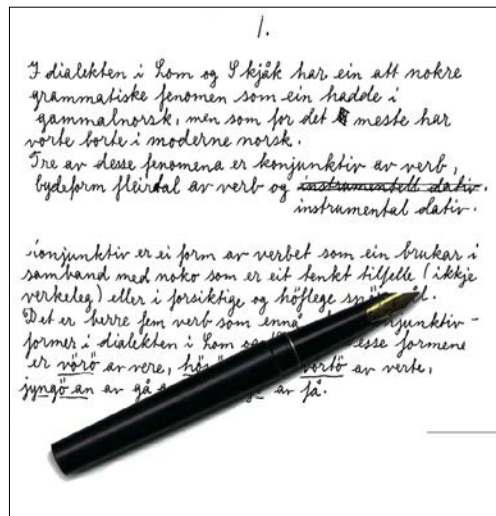 1.
I dialekten i Lom og Skjåk har ein att nokre
grammatiske fenomen som ein hadde i
gammalnorsk, men som for det meste har
vorte borte i moderne norsk.
Tre av desse fenomena er konjunktiv av verb,
bydeform fleirtal av verb og instrumentell dativ.
instrumental dativ.
Konjunktiv er ei form av verbet som ein brukar i
samband med noko som er eit tenkt tilfelle (ikkje
verkeleg) eller i forsiktige og høflege
Det er berre fem verb som enno
former i dialekten i Lom og formene
er vörö av vere, vortö av verte,
jyngö an av gå av få.